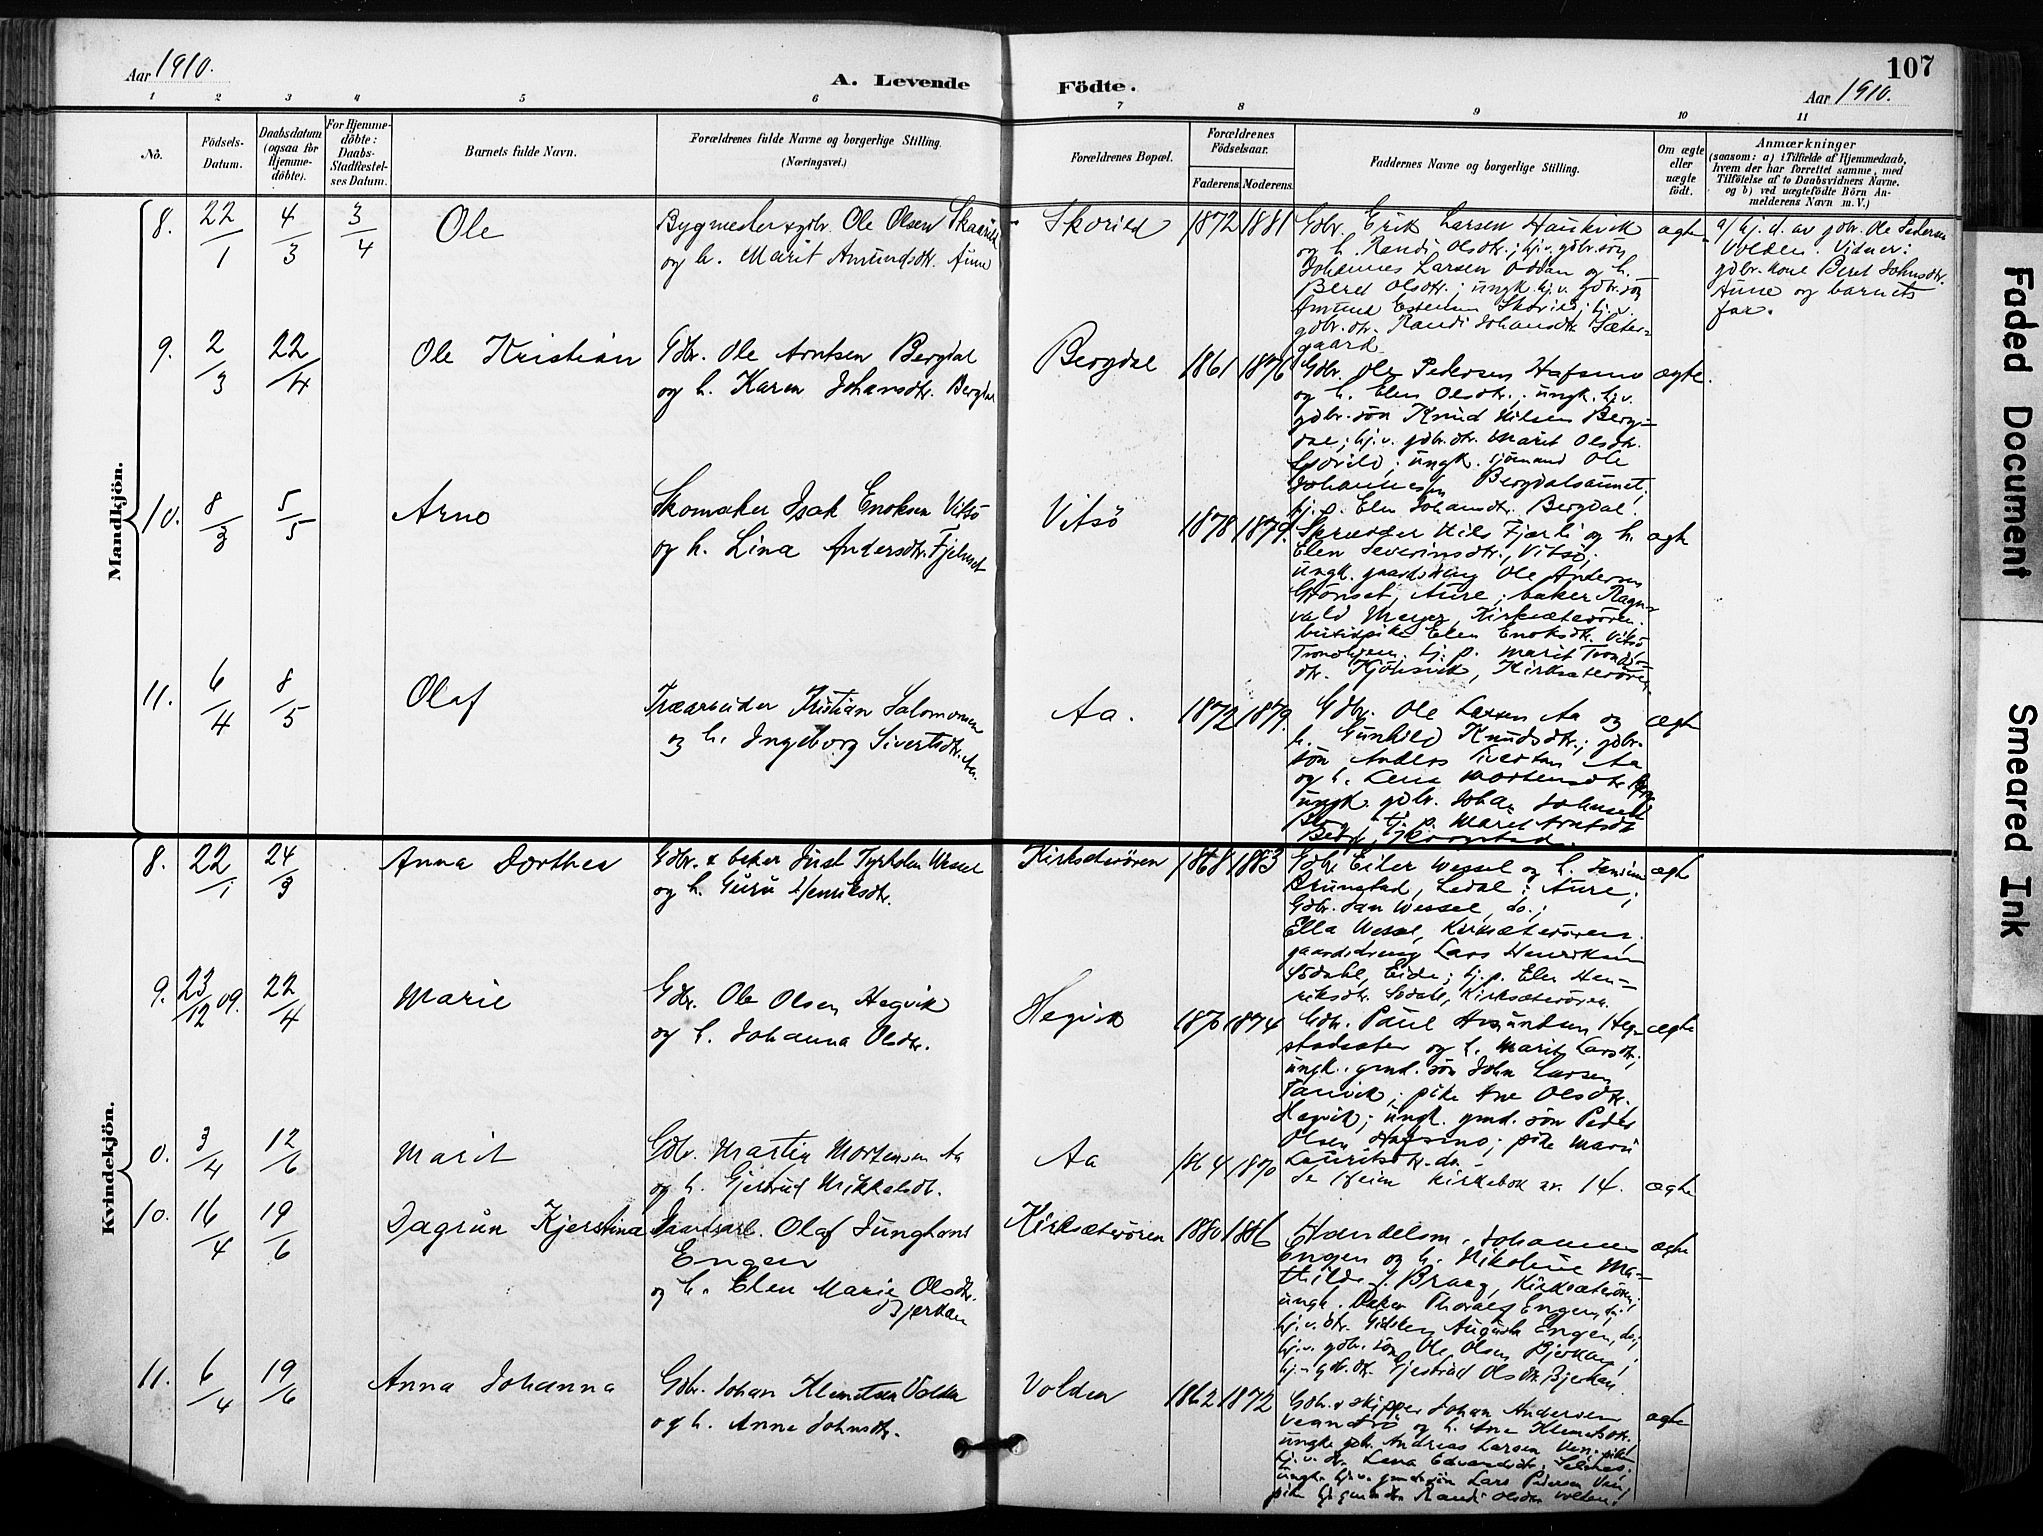 107
Aar 1910.
A. Levende Födte.
Aar 1910.
1 2 3 4 5 6 7 8 9 10 11
No.
Födsels-Datum.
Daabsdatum (ogsaa for Hjemme-döbte).
For Hjemme-döbte: Daabs-Stadfæstel-ses Datum.
Barnets fulde Navn.
Forældrenes fulde Navne og borgerlige Stilling. (Næringsvei.)
Forældrenes Bopæl.
Forældrenes Födselsaar.
Faderens. Moderens.
Faddernes Navne og borgerlige Stilling.
Om ægte eller uægte födt.
Anmærkninger
(saasom: a) i Tilfælde af Hjemmedaab,
hvem der har forrettet samme, med
Tilföielse af to Daabsvidners Navne.
og b) ved uægtefödte Börn An-
melderens Navn m. V.)
Mandkjön.
8. 22/1 4/3 3/4 Ole
Bygmester & gdbr. Ole Olsen Skarild
og h. Marit Amundsdtr. Aune
Skorild 1872 1881
Gdbr. Erik Larsen Haukvik
og h. Randi Olsdtr.; hj. v. gdbr. søn
Johannes Larsen Oddan og h.
Beret Olsdtr.; ungk. hj. v. gdbr. søn
Amund Estensen Skorild; hj. v.
gdbr. dtr. Randi Johansdtr. Sæter-
gaard
ægte
a/ hj. d. av gdbr. Ole Pedersen
Volden. Vidner:
gdbr. kone Beret Johnsdtr.
Aune og barnets
far.
9. 2/3 22/4 Ole Kristian
Gdbr. Ole Arntsen Bergdal
og h. Karen Johansdtr. Bergdal
Bergdal 1861 1876
Gdbr. Ole Pedersen Hafsmo
og h. Elen Olsdtr.; ungk. hj. v.
gdbr. søn Knud Nilsen Berg-
dal; hj. v. gdbr. dtr. Marit Olsdtr.
Skorild; ungk. sjømand Ole
Johannessen Bergdalsaunet;
hj. p. Elen Johansdtr. Bergdal.
ægte.
10. 8/3 5/5 Arne
Skomaker Isak Enoksen Vitsö
og h. Lina Andersdtr. Fjelnset
Vitsö 1878 1879.
Skrædder Nils Fjærli og h.
Elen Severinsdtr., Vitsö;
ungk. gaardsdreng Ole Andersen
Grönset, Aure; baker Ragn-
vald Meyer, Kirksæterören.
butikpike Elen Enoksdtr. Vitsö
Trondhjem. tj. p. Marit Tronds-
dtr. Kjönsvik, Kirksæterören.
ægte
11. 6/4 8/5 Olaf
Træarbeider Kristian Salomonsen
og h. Ingeborg Sivertsdtr. Aa.
Aa. 1872 1879.
Gdbr. Ole Larsen Aa og
h. Gunhild Knudsdtr.; gdbr.
søn Anders Sivertsen Aa
og h. Lena Mortensdtr.
ungk. gdbr. Johan Johnsen
tj. p. Marit Arntsdtr.
ægte
Kvindekjön.
8. 22/1 24/3 Anna Dorthea
Gdbr. & baker Just Tyrholm Wessel
og h. Guru Henriksdtr.
Kirksæterören 1868 1883
Gdbr. Eiler Wessel og h.
Brunstad, Ledal i Aure;
Gdbr. Jan Wessel, do.;
Ella Wessel, Kirksæterören;
gaardsdreng Lars Henriksen
Södahl, Eide; tj. p. Elen Hen-
riksdtr. Södahl, Kirksæterören.
ægte
9. 23/12 09. 22/4 Marie
Gdbr. Ole Olsen Hegvik
og h. Johanna Olsdtr.
Hegvik 1870 1874
Gdbr. Paul Amundsen Heg-
stadsæter og h. Marit Larsdtr.;
ungk. gmd. søn John Larsen
Tanvik; pike Ane Olsdtr.
Hegvik; ungk. gmd. søn Peder
Olsen Hafsmo; pike Marie
Lauritsdtr. do.
ægte
0. 3/4 12/6 Marit
Gdbr. Martin Mortensen Aa
og h. Gjertrud Mikkelsdtr.
Aa 1864 1870
Se Heim kirkebok nr. 14.
ægte
10. 16/4 19/6 Dagrun Kjerstina
Olaf Junghans
Engen
og h. Elen Marie Olsdtr.
Bjerkan
Kirksæterören 1880 1886
Handelsm. Johannes
Engen og h. Nikoline Ma-
thilde f. Braaz, Kirksæterören;
ungk. Thoralf Engen, do;
hj. v. dtr. Gidsken Augusta Engen, do.;
hj. v. gdbr. søn Ole Olsen Bjerkan;
hj. v. gdbr. dtr. Gjertrud Olsdtr. Bjerkan.
ægte
11. 6/4 19/6 Anna Johanna
Gdbr. Johan Klemetsen Volden
og h. Anne Johnsdtr.
Volden 1862 1872
Gdbr. & skipper Johan Andersen
og h. Ane Klemetsdtr.
ungk. gdbr. Andreas Larsen
hj. v. dtr. Lena Edvardsdtr.
ungk. hj. v. gmd. søn Lars Pedersen
pike Randi Olsdtr. Volden.
ægte
Faded Document
Smeared Ink